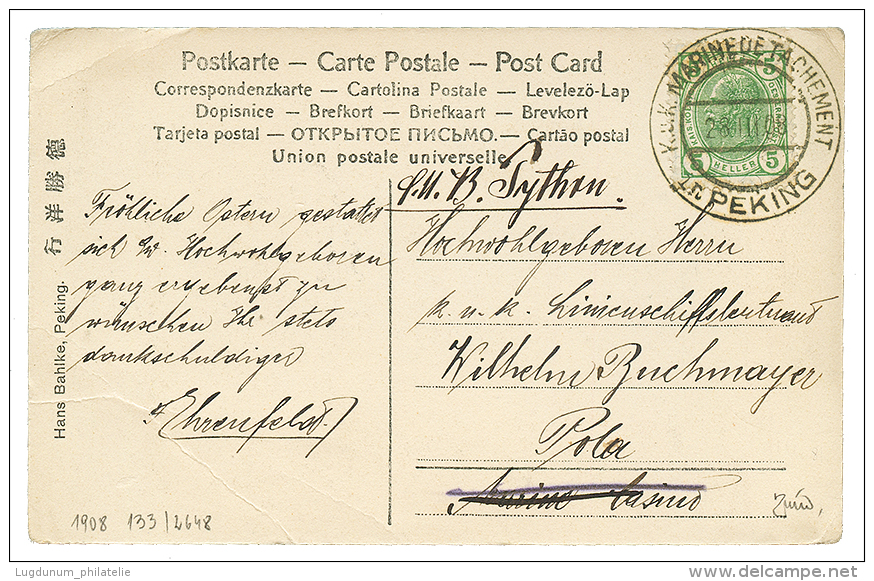 Postkarte – Carte Postale – Post Card
Correspondenzkarte – Cartolina Postale – Levelezö-Lap
Dopisnice – Brefkort – Briefkaart – Brevkort
Tarjeta postal – ОТКРЫТОЕ ПИСЬМО. – Cartão postal
Union postale universelle
K.U.K. MARINEDETACHEMENT
PEKING
5 5
5 HELLER 5
S.M.B. Python.
Fröhliche Ostern gestattet
sich Ew. Hochwohlgeboren
ganz ergebenst zu
wünschen Ihr stets
dankschuldiger
Ehrenfeld.
Hochwohlgeboren Herrn
k. u. k. Linienschiffsleutnant
Wilhelm Buchmayer
Pola
Marine Casino
德勝洋行
Hans Bahlke, Peking.
1908 133/2648
Lugdunum_philatelie
delcampe.net